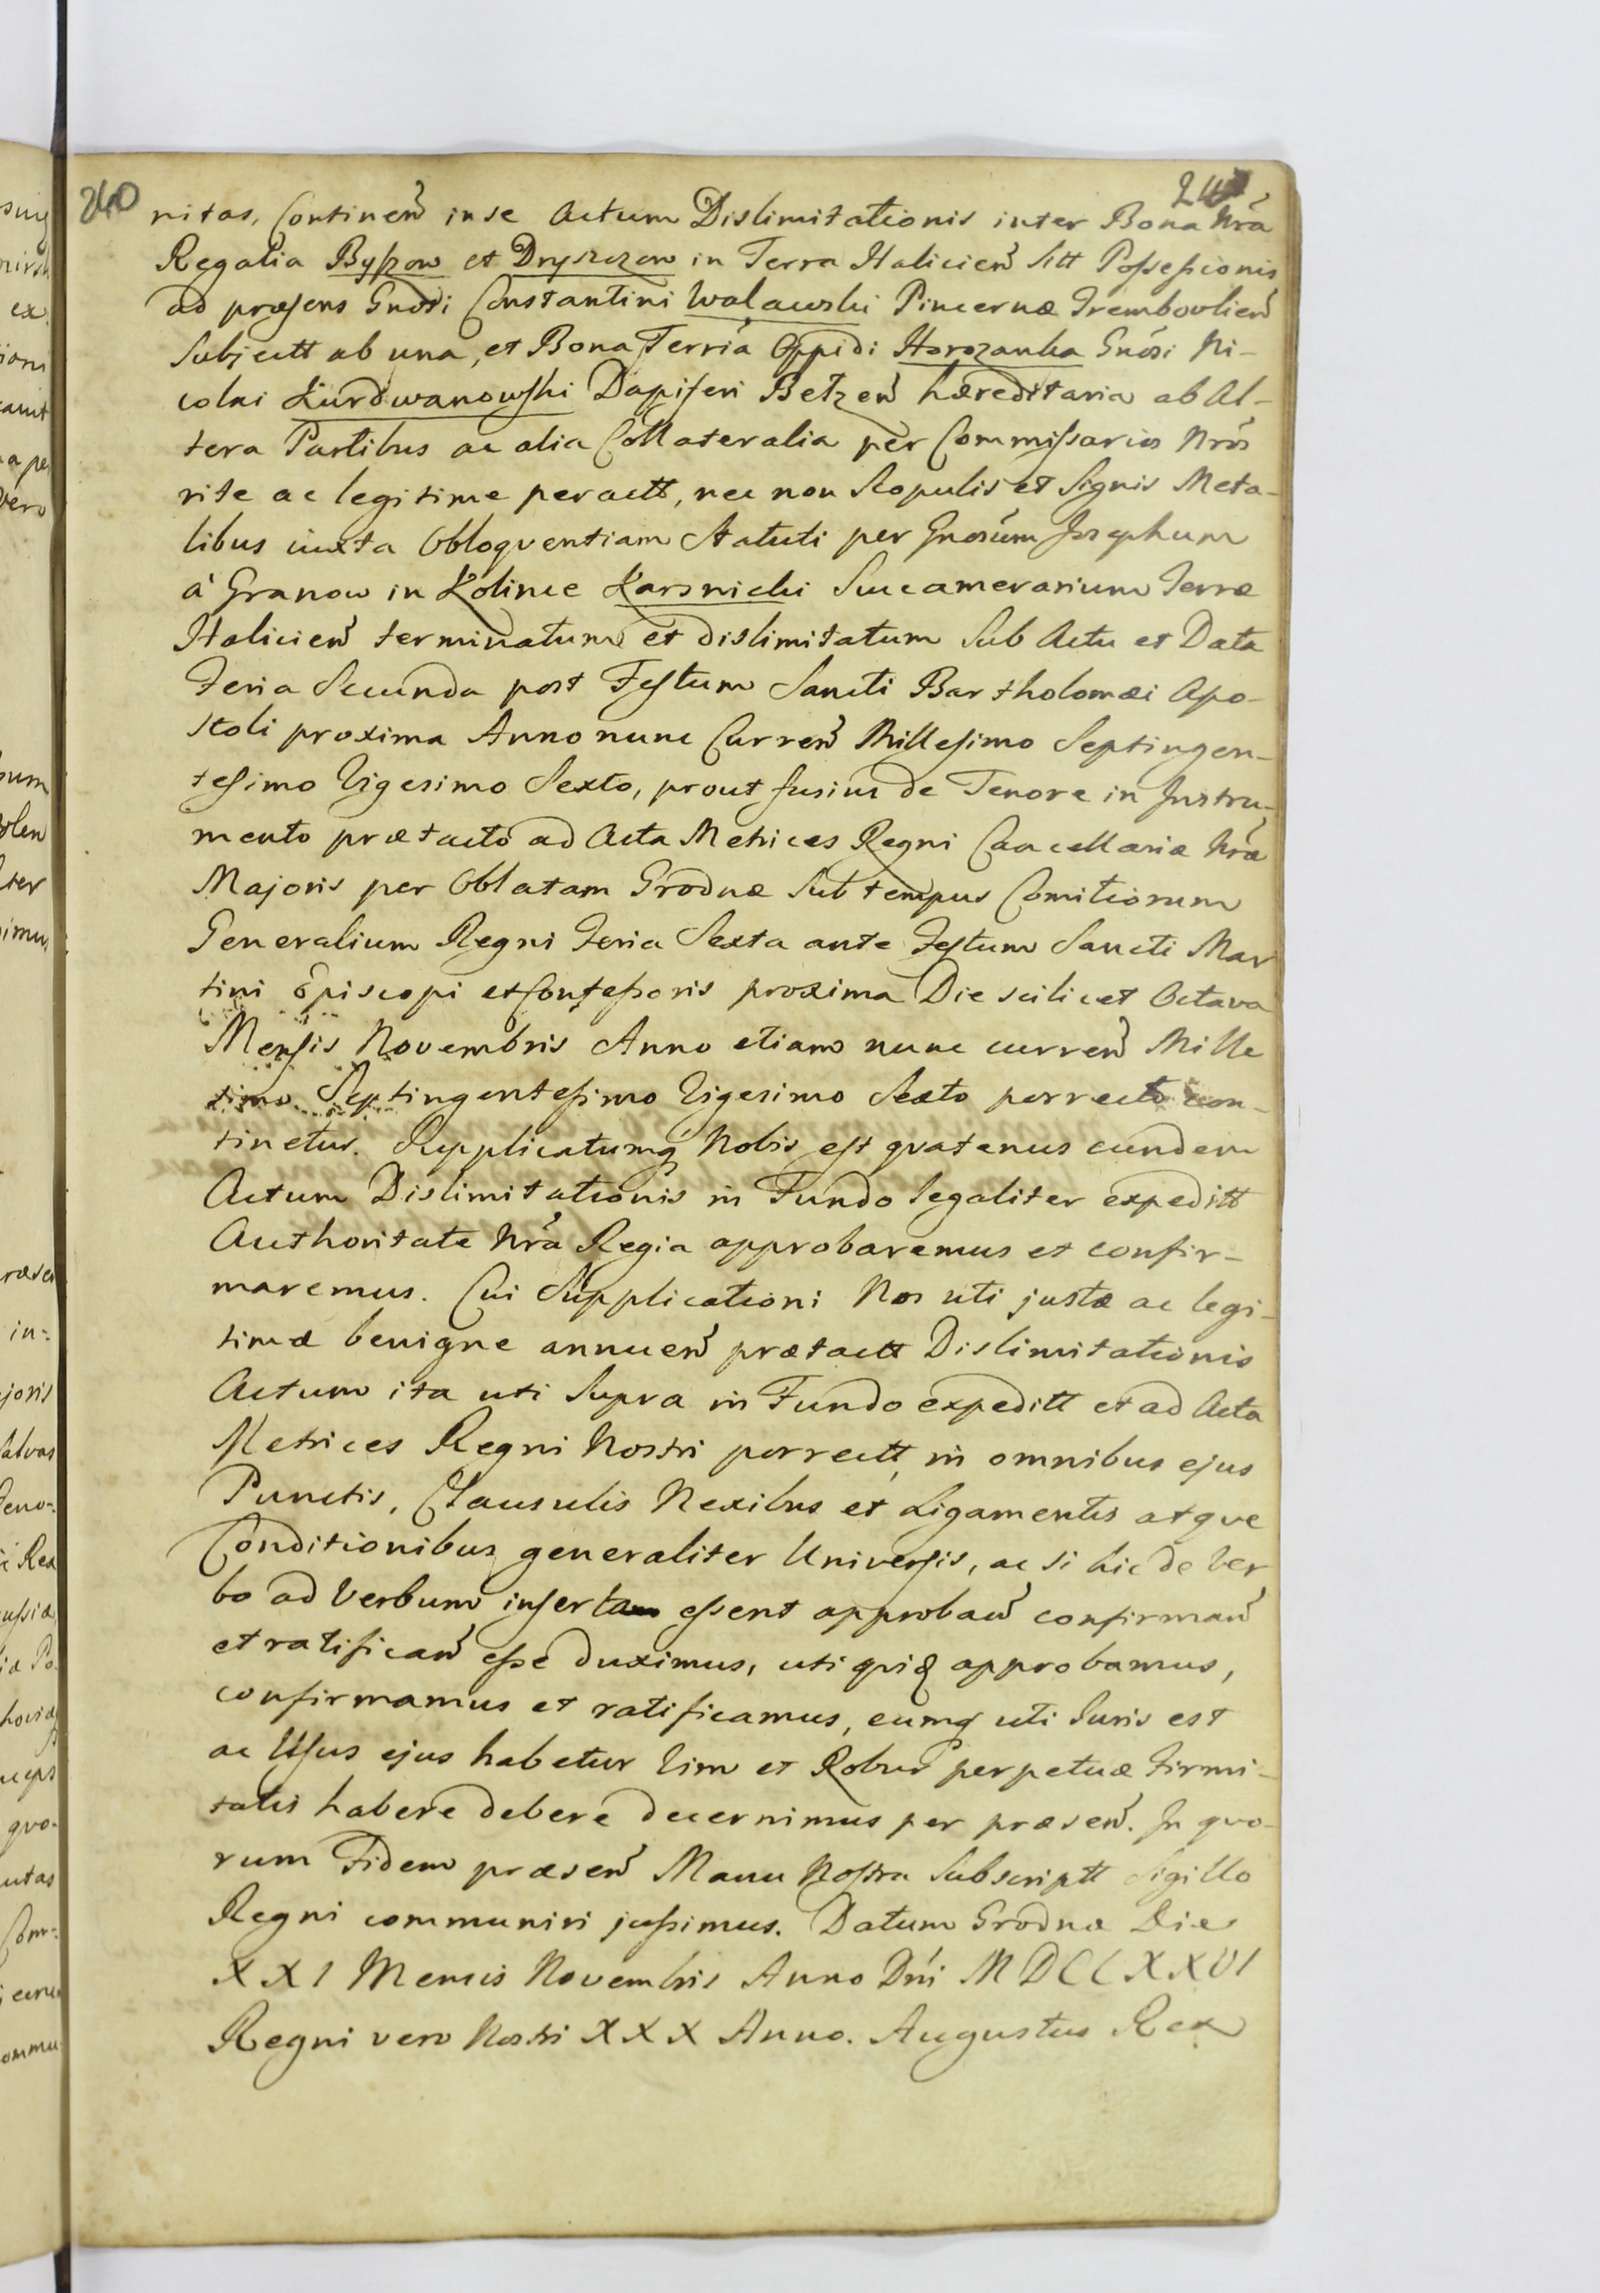 240
nitas, Continen̄ in se Actum Dislimitationis inter Bona Nrã
Regalia Byſzow et Dryszczow in Terra Halicień Sitt Poſseſsionis
ad præſens Gnosi Constantini Walawski Pincernæ Trembovlień
Subjectt ab una, et Bona Terria Oppidi Horozanka Gnosi Ni-
colai Kurdwanowſki Dapiferi Betzeń hæreditaria ab Al-
tera Partibus ac alia Collateralia per Commiſsarios Nros
rite ac legitime peractt, nec non Scopulis et Signis Meta-
libus iuxta Obloqventiam Statuti per Gnosum Josephum
à Granow in Kolince Karsnicki Succamerarium Terræ
Halicień terminatum et dislimitatum Sub Actu et Data
Feria Secunda post Feſtum Sancti Bartholomæi Apo-
stoli proxima Anno nunc Curreń Milleſimo Septingen-
teſimo Vigesimo Sexto, prout fusius de Tenore in Instru-
mento prætacto ad Acta Metrices Regni Cancellariæ Nræ
Majoris per Oblatam Grodnæ Sub tempus Comitiorum
Generalium Regni Feria Sexta ante Feſtum Sancti Mar
tini Episcopi et Confeſsoris proxima Die scilicet Octava
Menſis Novembris Anno etiam nunc curreń Mille
simo Septingenteſsimo Vigesimo Sexto porrecto con-
tinetur. Supplicatumq Nobis eſt qvatenus eundem
Actum Dislimitationis in Fundo legaliter expeditt
Authoritate Nrã Regia approbaremus et confir-
maremus. Cui Supplicationi Nos uti justæ ac legi-
timæ benigne annueń prætactt Dislimitationis
Actum ita uti Supra in Fundo expeditt et ad Acta
Metrices Regni Nostri porrectt, in omnibus ejus
Punctis, Clausulis Nexibus et Ligamentis atqve
Conditionibus generaliter Univerſis, ac si hic de Ver
bo ad Verbum inſerta eſsent approbań confirmań
et ratificań eſse duximus, uti qvidē approbamus,
confirmamus et ratificamus, eumq uti Juris est
ac Uſus ejus habetur Vim et Robur perpetuæ Firmi-
tatis habere debere decernimus per præseń. In qvo-
rum Fidem præseń Manu Noſtra Subscriptt Sigillo
Regni communiri juſsimus. Datum Grodnæ Die
XXI Mensis Novembris Anno Dni MDCCXXVI
Regni vero Nostri XXX Anno. Augustus Rex